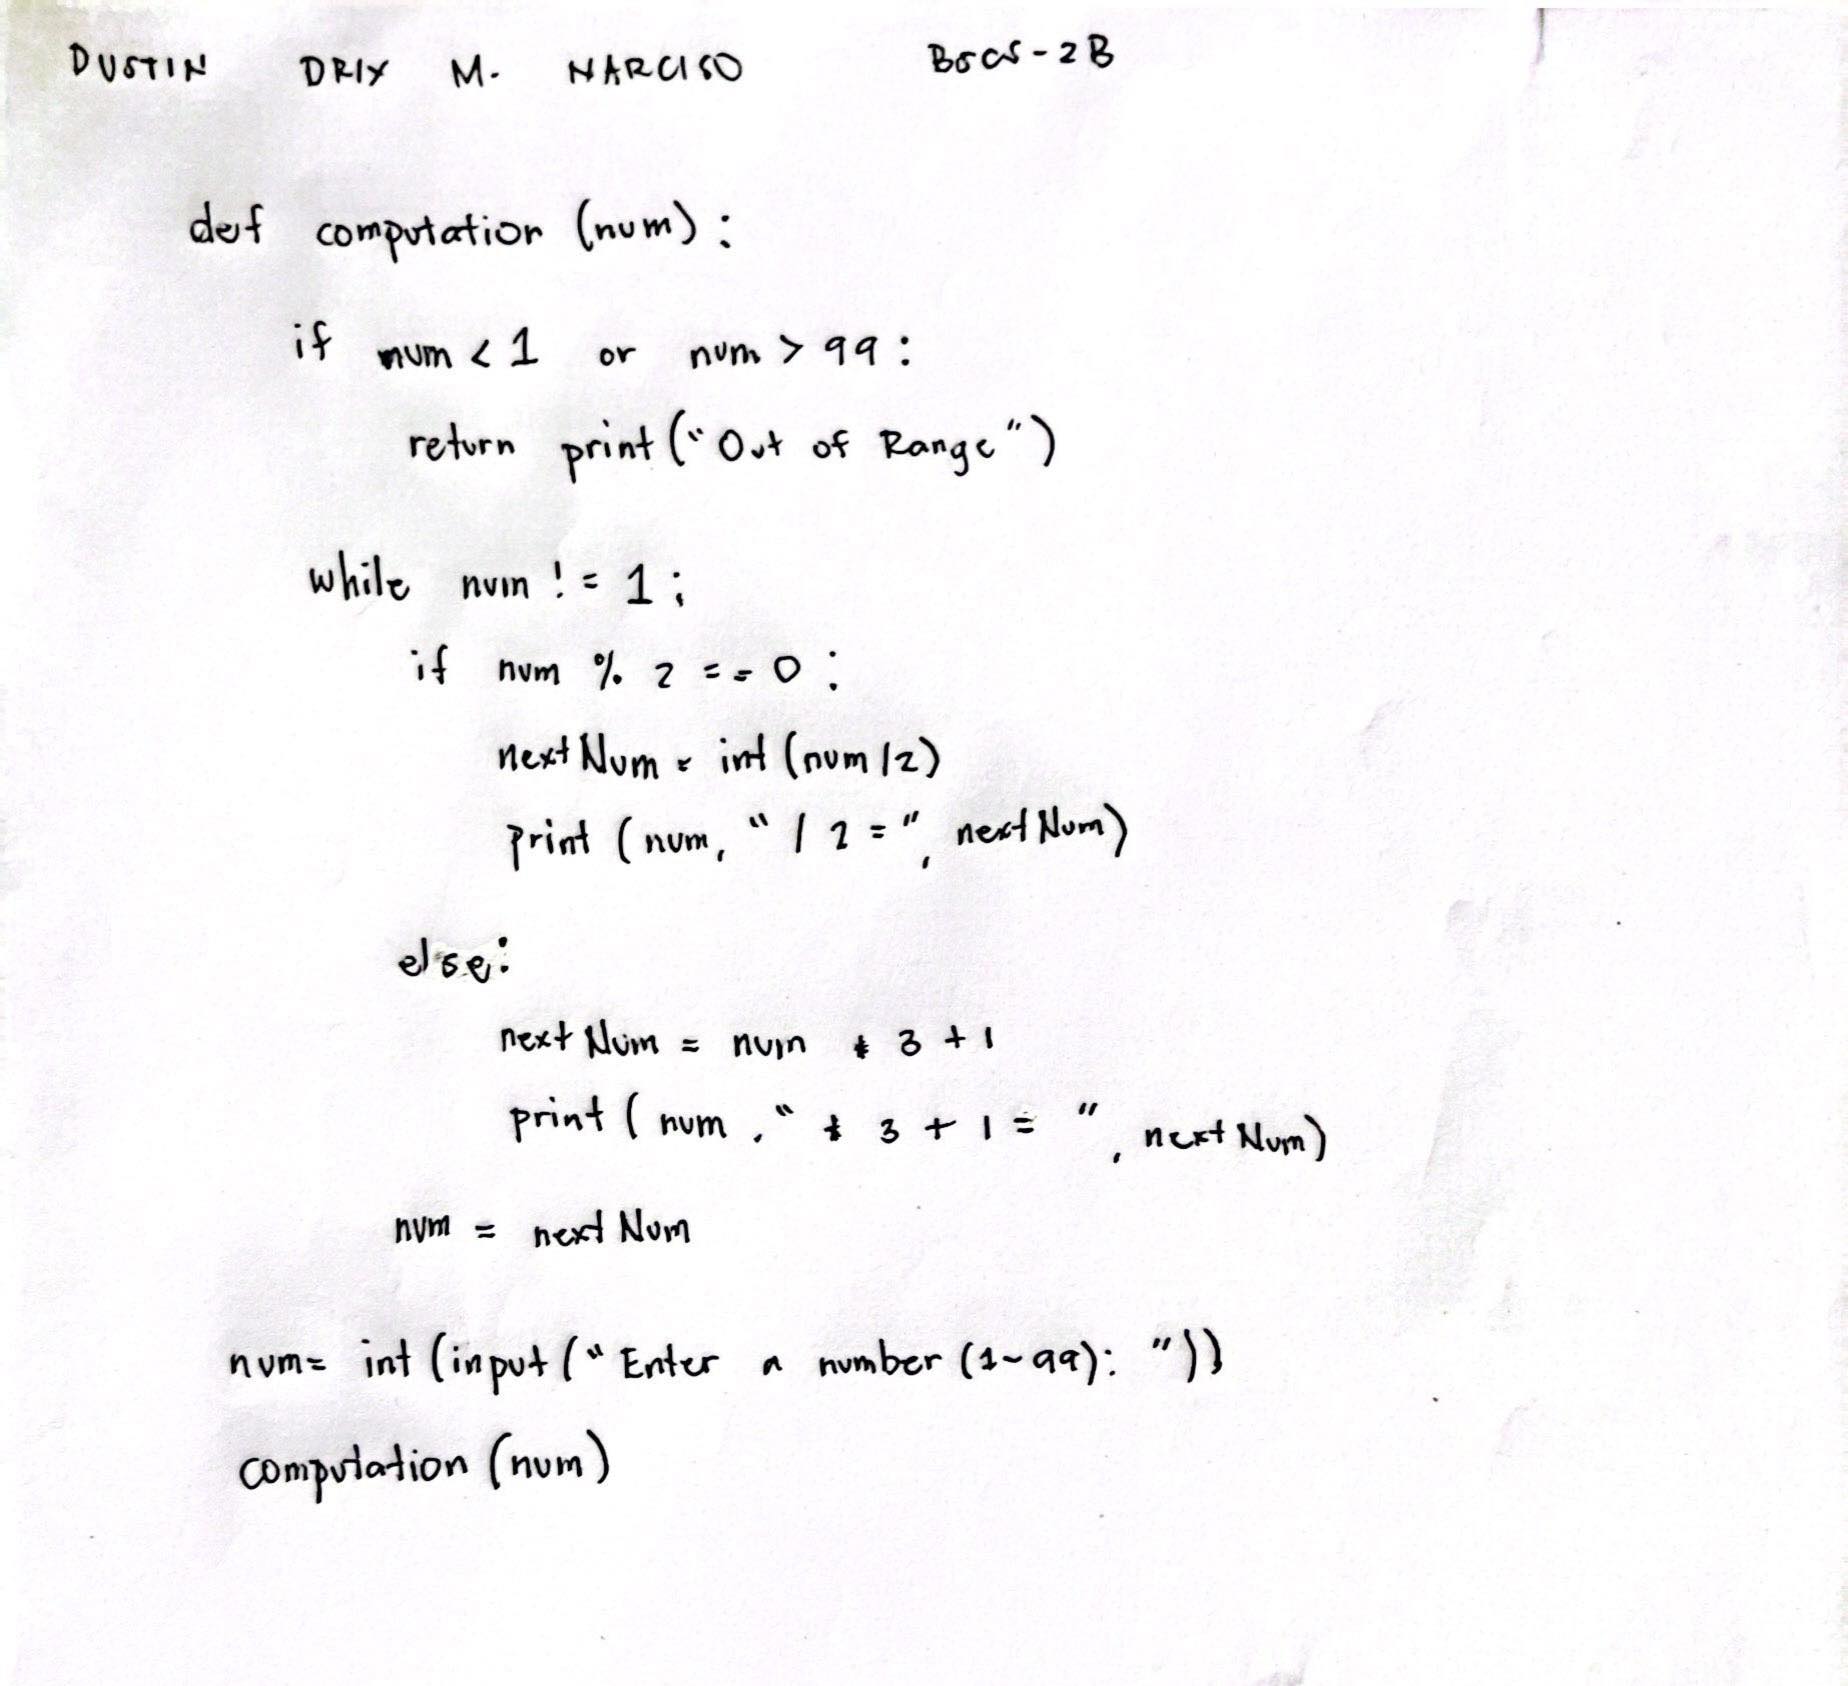 DUSTIN DRIX M. NARCISO BSCS-2B
def computation (num):
if num < 1 or num > 99:
return print("Out of Range")
while num != 1;
if num % 2 == 0:
nextNum = int (num/2)
print (num, "/ 2 =", nextNum)
else:
nextNum = num * 3 + 1
print (num, "* 3 + 1 = ", nextNum)
num = nextNum
num= int (input ("Enter a number (1-99): "))
computation (num)